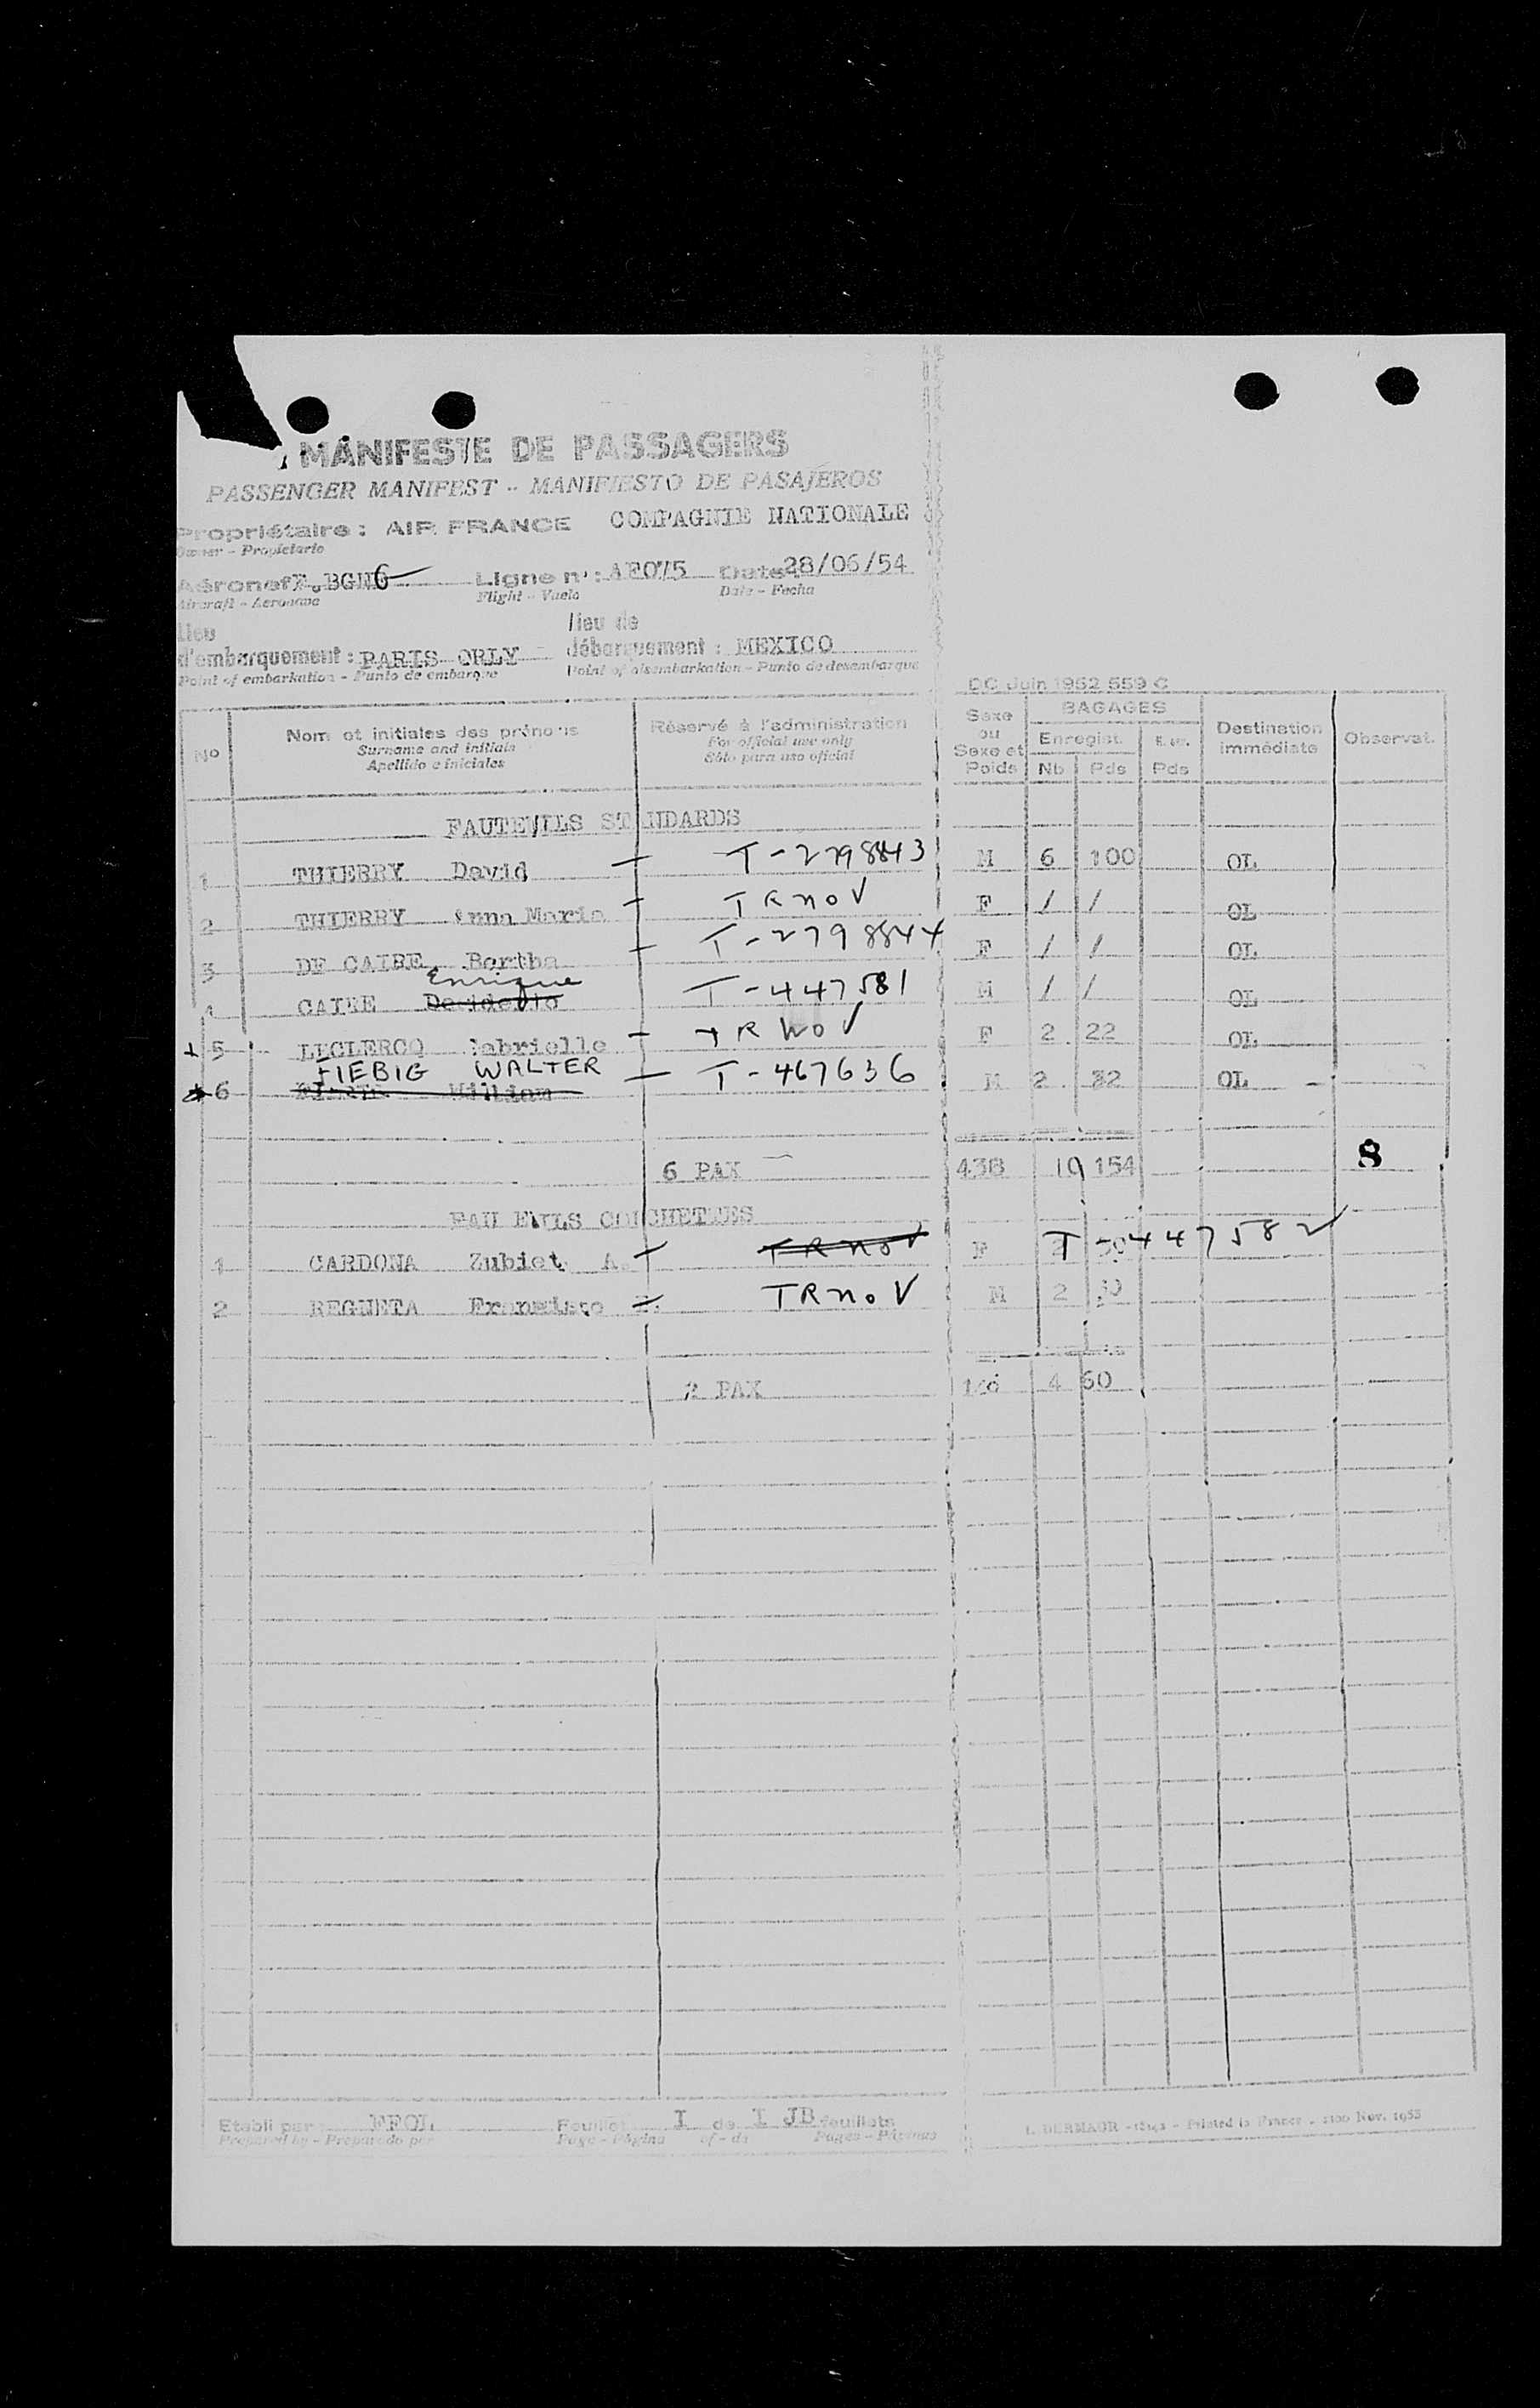 MANIFESTE DE PASSAGERS
PASSENGER MANIFEST - MANIFIESTO DE PASAJEROS
Propriétaire : AIR FRANCE COMPAGNIE NATIONALE
Owner - Propietario
Aéronef: Ligne n° : AF075 Date: 28/06/54
Aircraft - Aeronave Flight - Vuelo Date - Fecha
Lieu d'embarquement : PARIS ORLY lieu de débarquement : MEXICO
Point of embarkation - Punto de embarque Point of disembarkation - Punto de desembarque
DC Juin 1952 559 C
No Nom et initiales des prénoms Réservé à l'administration Sexe ou Sexe et Poids BAGAGES Destination immédiate Observat.
Surname and initials For official use only Enregist.
Apellido e iniciales Sólo para uso oficial Nb Pds Pds
FAUTEUILS STANDARDS
1 THIERRY David - T-2798843 M 6 100 OL
2 THIERRY Anna Maria - TRnoV F / / OL
3 DE CAIRE Bertha - T-2798844 F / / OL
Enrique
4 CAIRE T-447581 M / / OL
5 LECLERCQ Gabrielle - F 2 22 OL
FIEBIG WALTER - T-467636
6 William M 2 32 OL
6 PAX 438 10 154 8
FAUTEUILS COUCHETTES
1 CARDONA Zubiet A. - TRnoV F T-447582
2 REGUETA Francisco TRnoV M 2 30
2 PAX 4 60
Etabli par FFOL Feuillet I de I JB feuillets
Prepared by - Preparado por Page - Página of - de Pages - Páginas
Printed in France - Nov. 1953